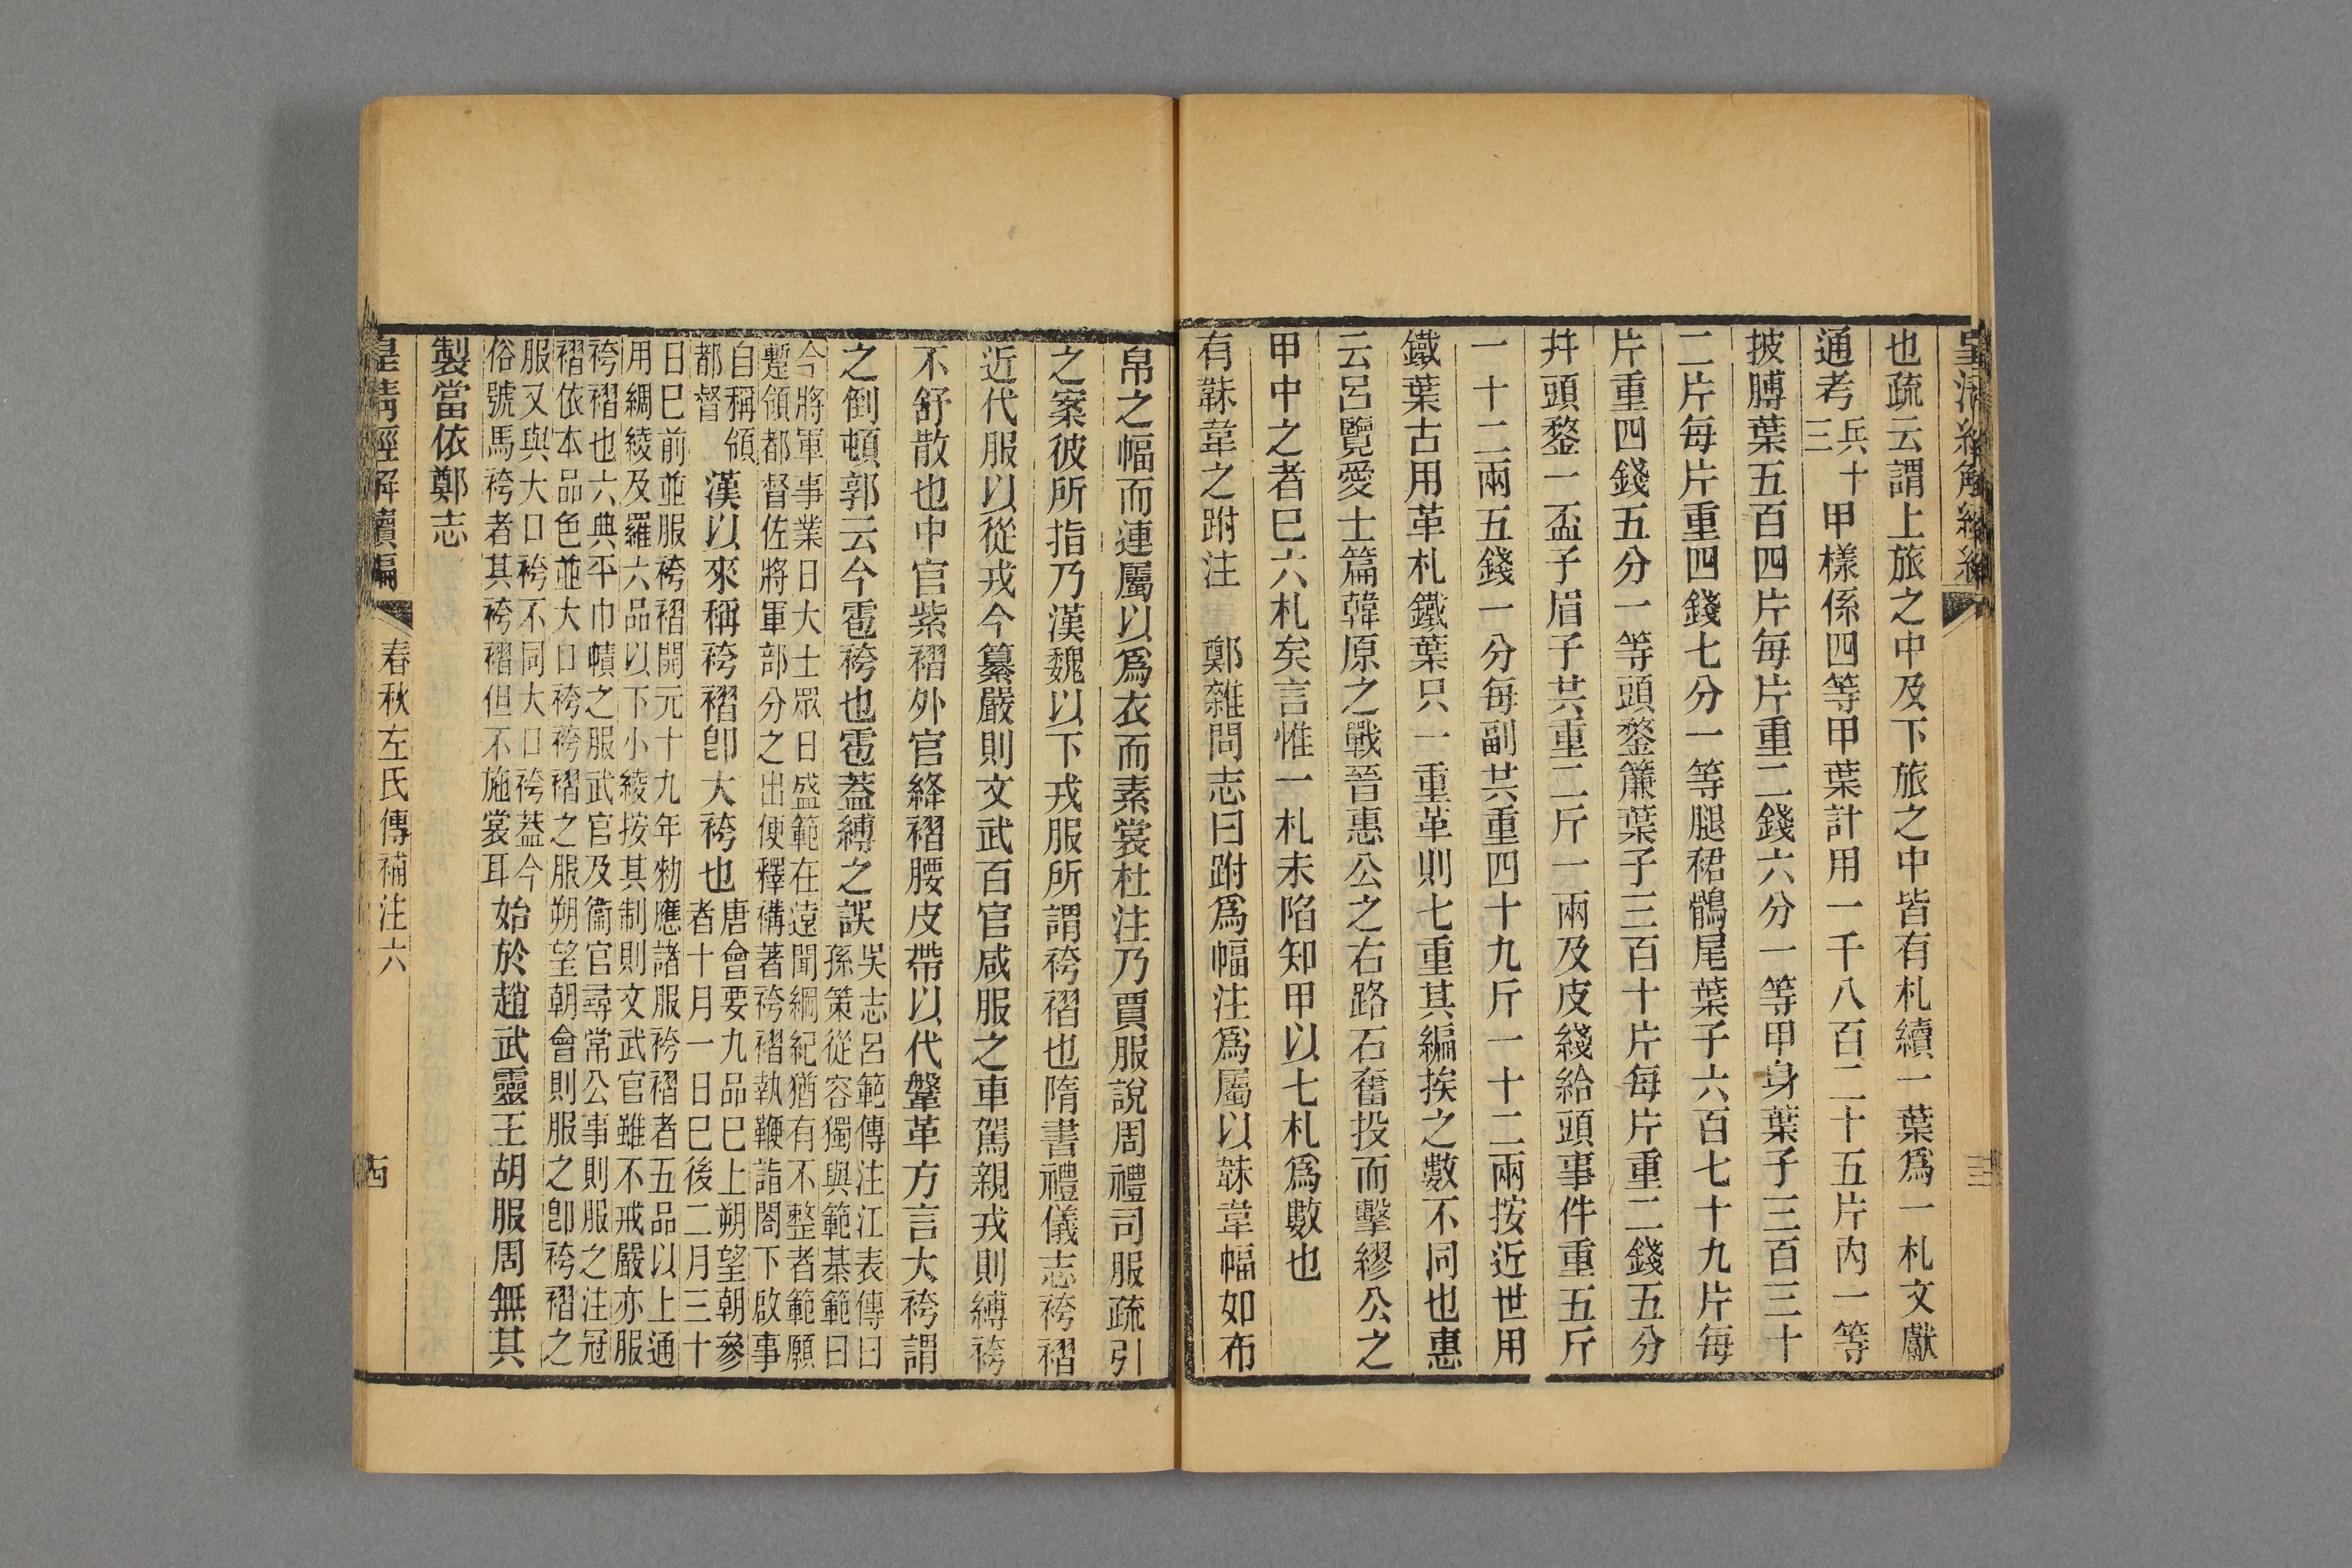 也疏云謂上旅之中及下旅之中皆有札續一葉爲一札文獻
通考兵十三甲樣係四等甲葉計用一千八百二十五片內一等
披膊葉五百四片每片重二錢六分一等甲身葉子三百三十
二片每片重四錢七分一等腿裙鶻尾葉子六百七十九片每
片重四錢五分一等頭鍪簾葉子三百十片每片重二錢五分
幷頭鍪一盔子眉子共重二斤一兩及皮綫給頭事件重五斤
一十二兩五錢一分每副共重四十九斤一十二兩按近世用
鐵葉古用革札鐵葉只一重革則七重其編挨之數不同也惠
云呂覽愛士篇韓原之戰晉惠公之右路石奮投而擊繆公之
甲中之者巳六札矣言惟一札未陷知甲以七札爲數也
有韎韋之跗注　鄭雜問志曰跗爲幅注爲屬以韎韋幅如布
帛之幅而連屬以爲衣而素裳杜注乃賈服說周禮司服疏引
之案彼所指乃漢魏以下戎服所謂袴褶也隋書禮儀志袴褶
近代服以從戎今纂嚴則文武百官咸服之車駕親戎則縛袴
不舒散也中官紫褶外官絳褶腰皮帶以代鞶革方言大袴謂
之倒頓郭云今雹袴也雹蓋縛之誤吳志呂範傳注江表傳曰
孫策從容獨與範棊範曰
今將軍事業日大士眾日盛範在遠聞綱紀猶有不整者範願
蹔領都督佐將軍部分之出便釋褠著袴褶執鞭詣閤下啟事
自稱領
都督漢以來稱袴褶卽大袴也唐會要九品巳上朔望朝參
者十月一日巳後二月三十
日巳前並服袴褶開元十九年勑應諸服袴褶者五品以上通
用綢綾及羅六品以下小綾按其制則文武官雖不戒嚴亦服
袴褶也六典平巾幘之服武官及衞官尋常公事則服之注冠
褶依本品色並大口袴袴褶之服朔望朝會則服之卽袴褶之
服又與大口袴不同大口袴蓋今
俗號馬袴者其袴褶但不施裳耳始於趙武靈王胡服周無其
製當依鄭志
皇淸經解續編
春秋左氏傳補注六